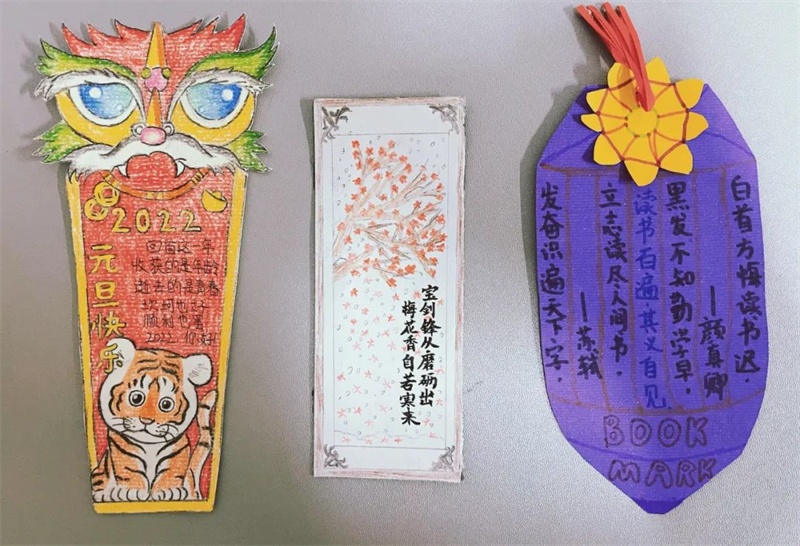 2022
元旦快乐
回首这一年
收获的是年龄
逝去的是青春
坎坷也好
顺利也罢
2022 你好!
宝剑锋从磨砺出
梅花香自苦寒来
白首方悔读书迟。
——颜真卿
黑发不知勤学早,
读书百遍,其义自见
立志读尽人间书。
——苏轼
发奋识遍天下字,
BOOK
MARK